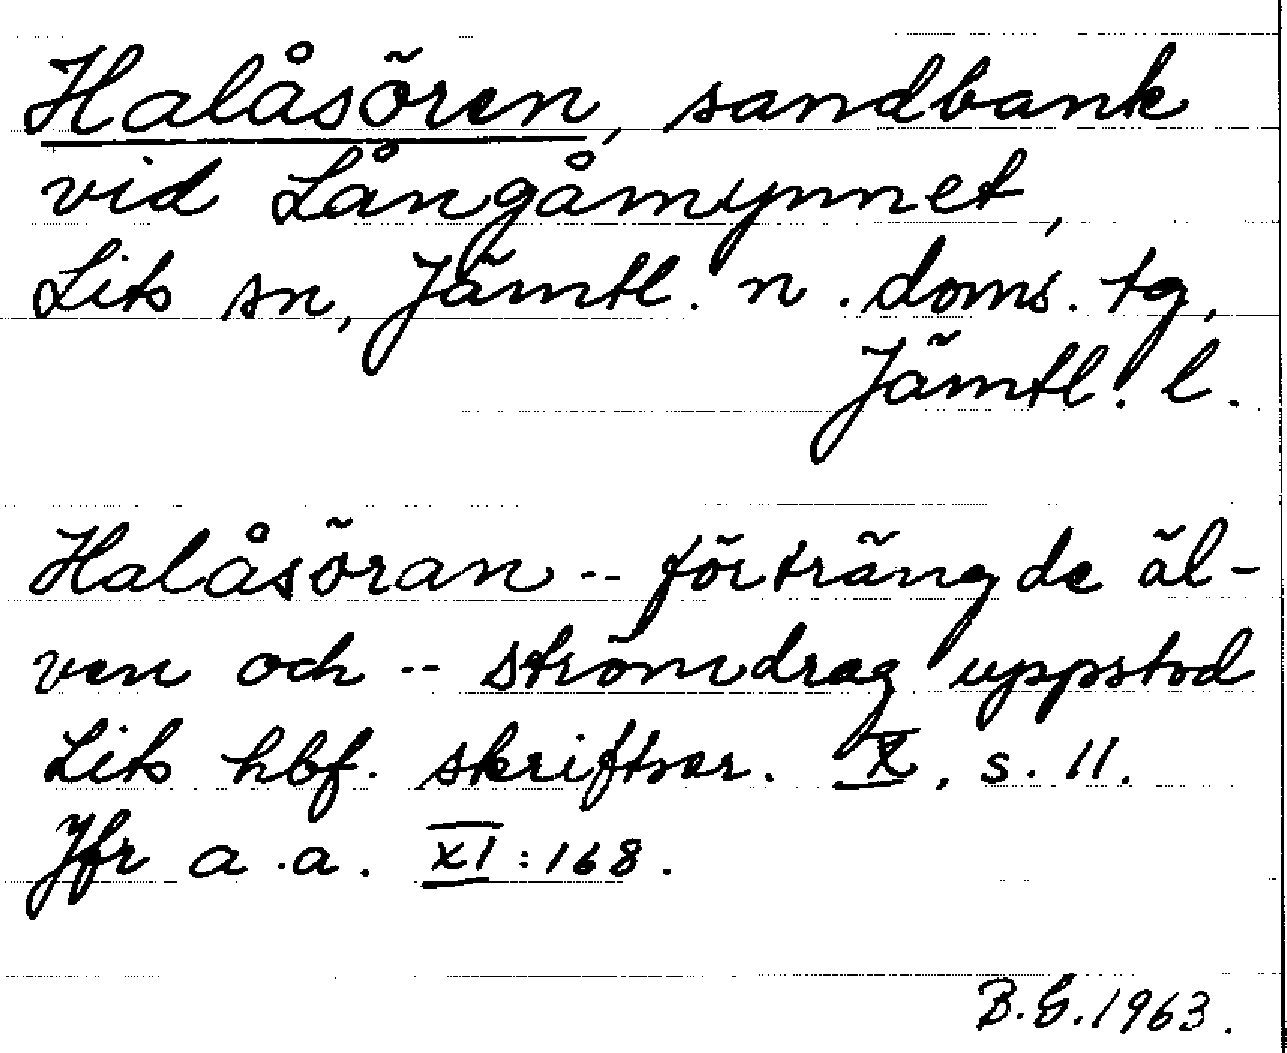 Halåsören, sandbank
vid Långåmynnet,
Lits sn, Jämtl. n. doms. tg,
Jämtl. l.
Halåsöran -- förträngde äl-
ven och -- strömdrag uppstod
Lits hbf. skriftser. X, s. 11.
Jfr a.a. XI:168.
B.G. 1963.